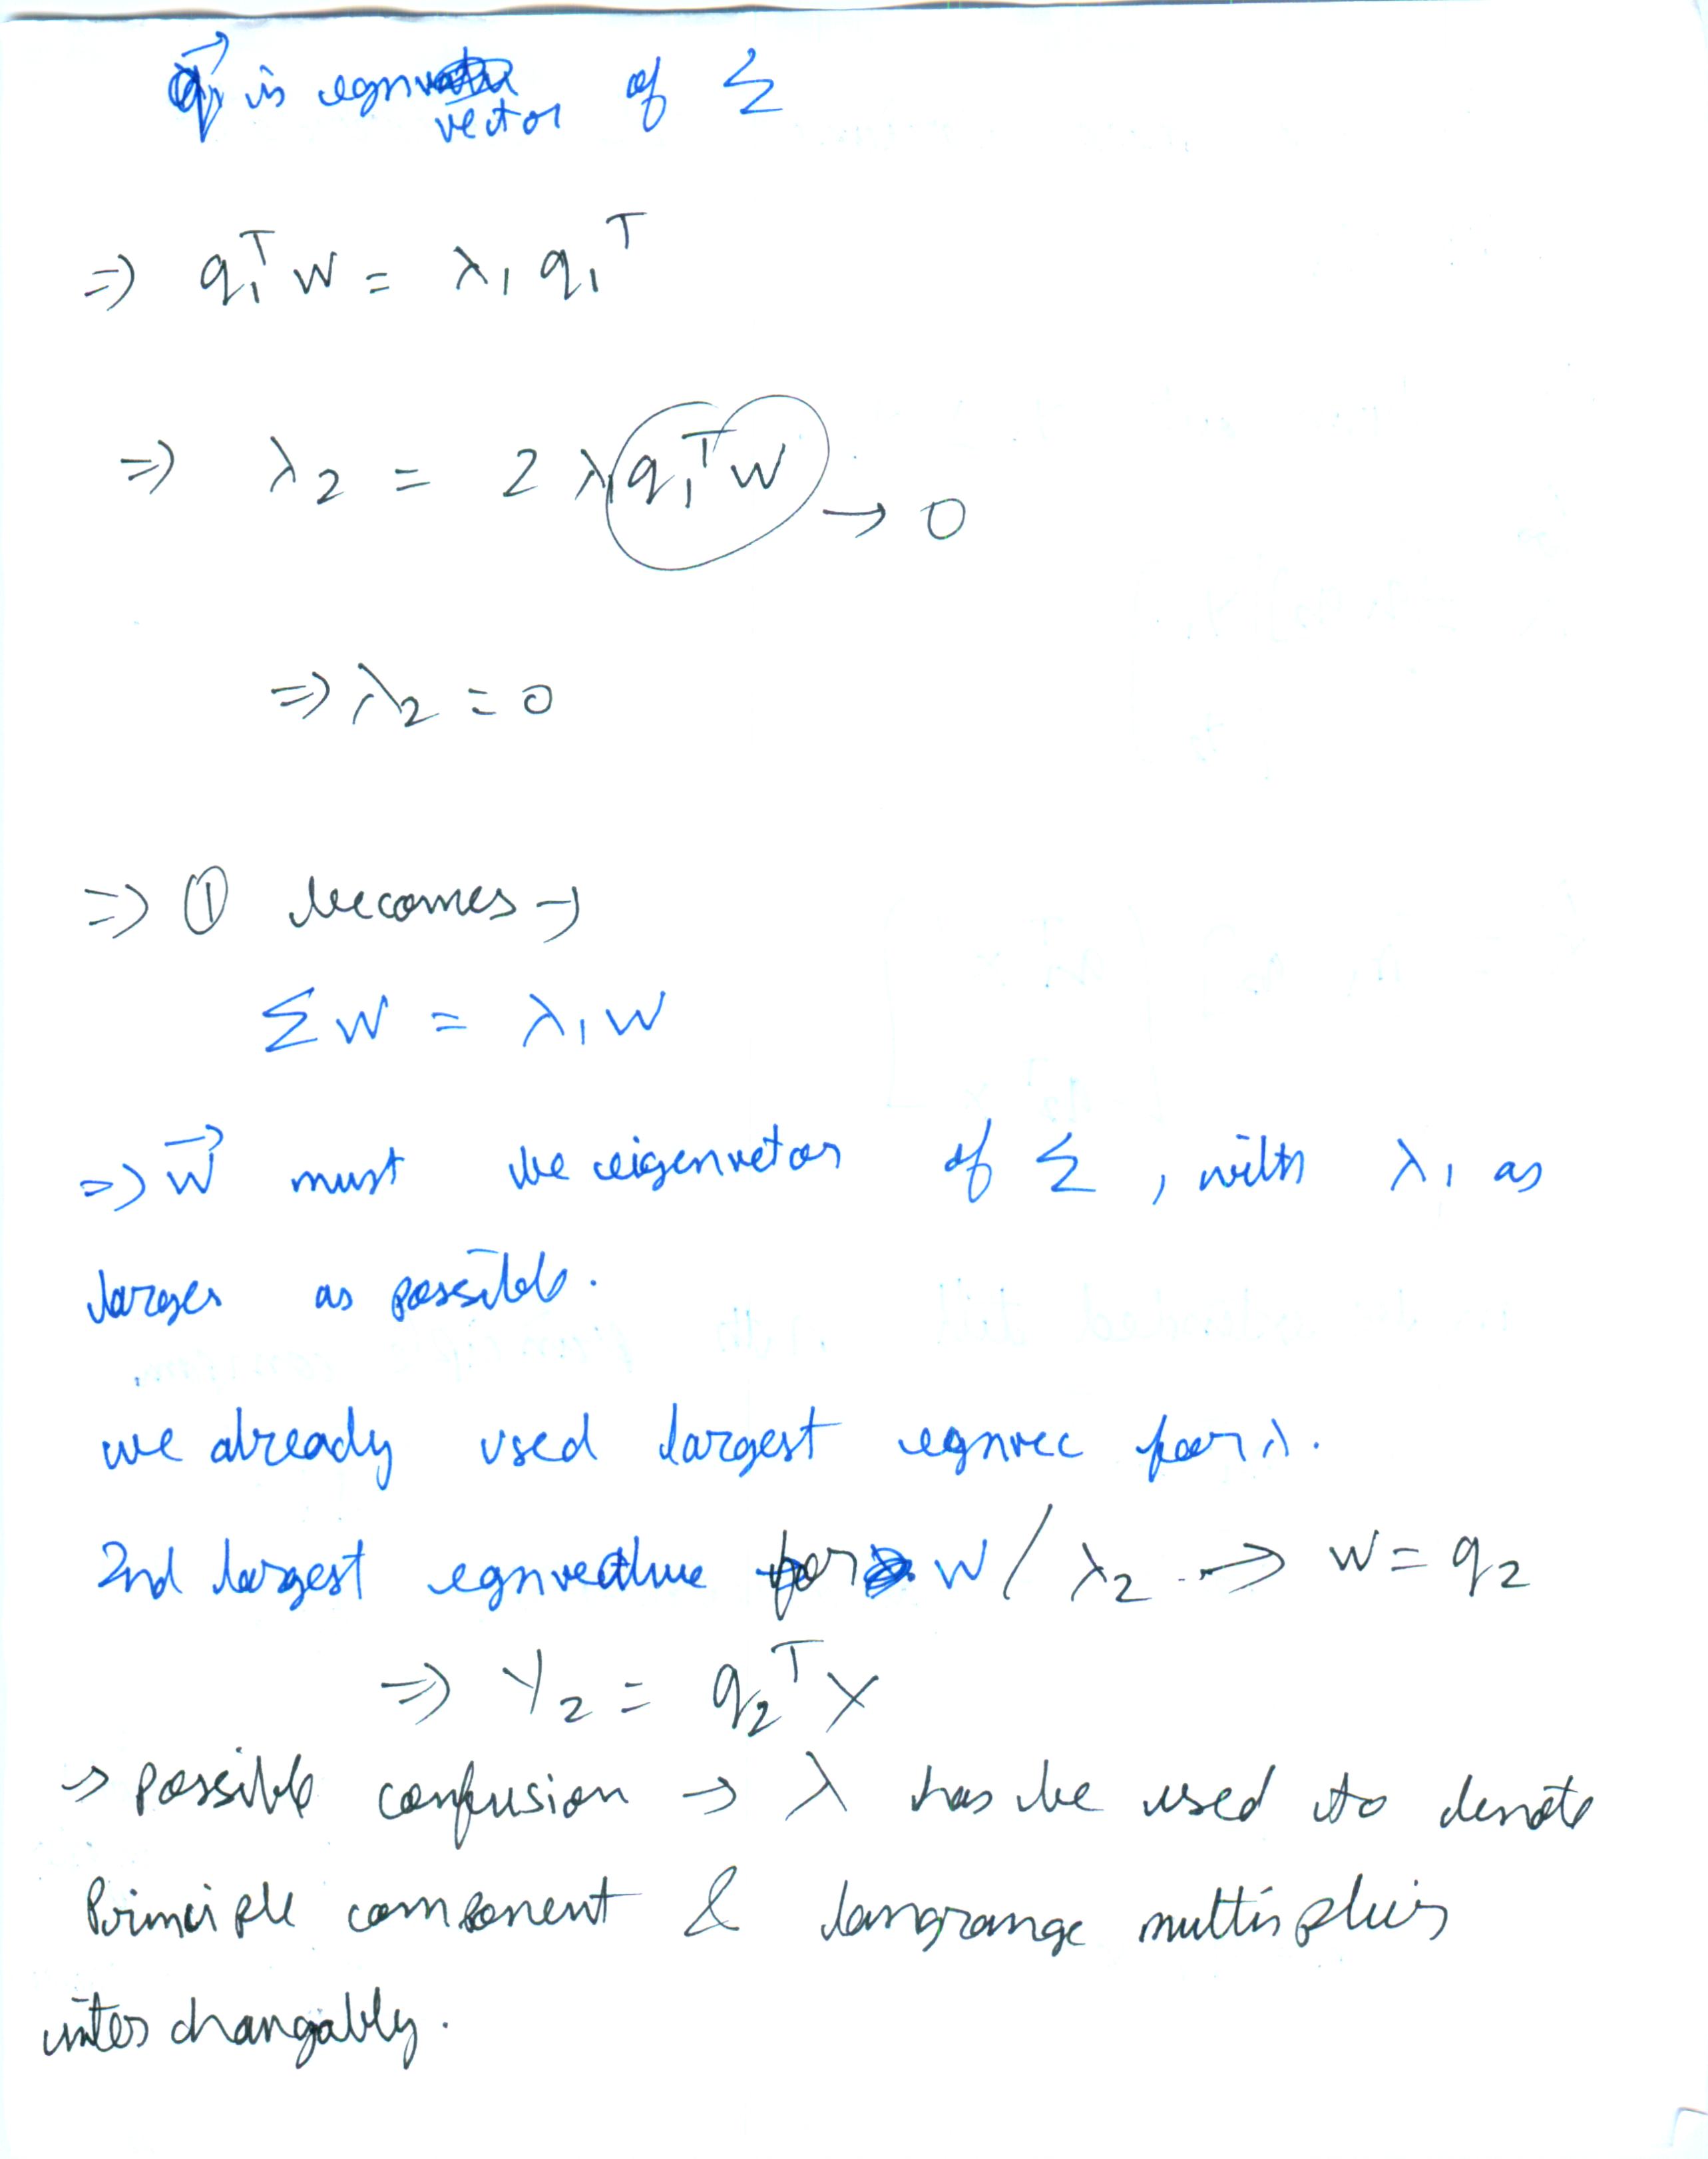 q⃗₁ is egn vector of Σ
⇒ q₁ᵀ W = λ₁ q₁ᵀ
⇒ λ₂ = 2 λ₁ q₁ᵀ W → 0
⇒ λ₂ = 0
⇒ ① becomes →
Σ W = λ₁ W
⇒ W⃗ must be eigenvetor of Σ, with λ₁ as
larger as possible.
we already used largest egnvec for λ.
2nd largest egnvectlue for W / λ₂ → W = q₂
⇒ Y₂ = q₂ᵀ X
→ possible confusion → λ has be used to denote
Principle component & langrange multipliers
interchangably.